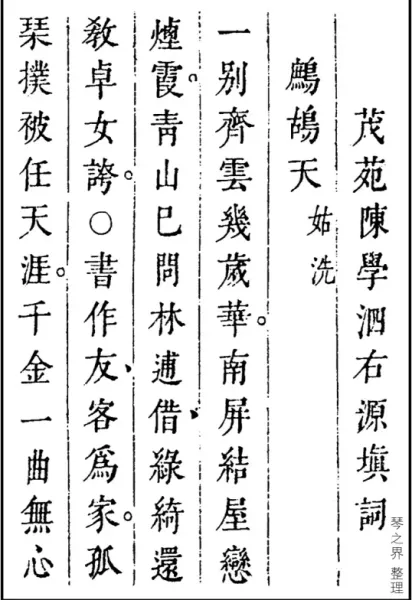 茂苑陳學泗右源塡詞
鷓鴣天 姑洗
一别齊雲幾歲華。南屏結屋戀
煙霞。青山已問林逋借、綠綺還
敎卓女誇。〇書作友、客爲家。孤
琹襆被任天涯。千金一曲無心
琴之界 整理